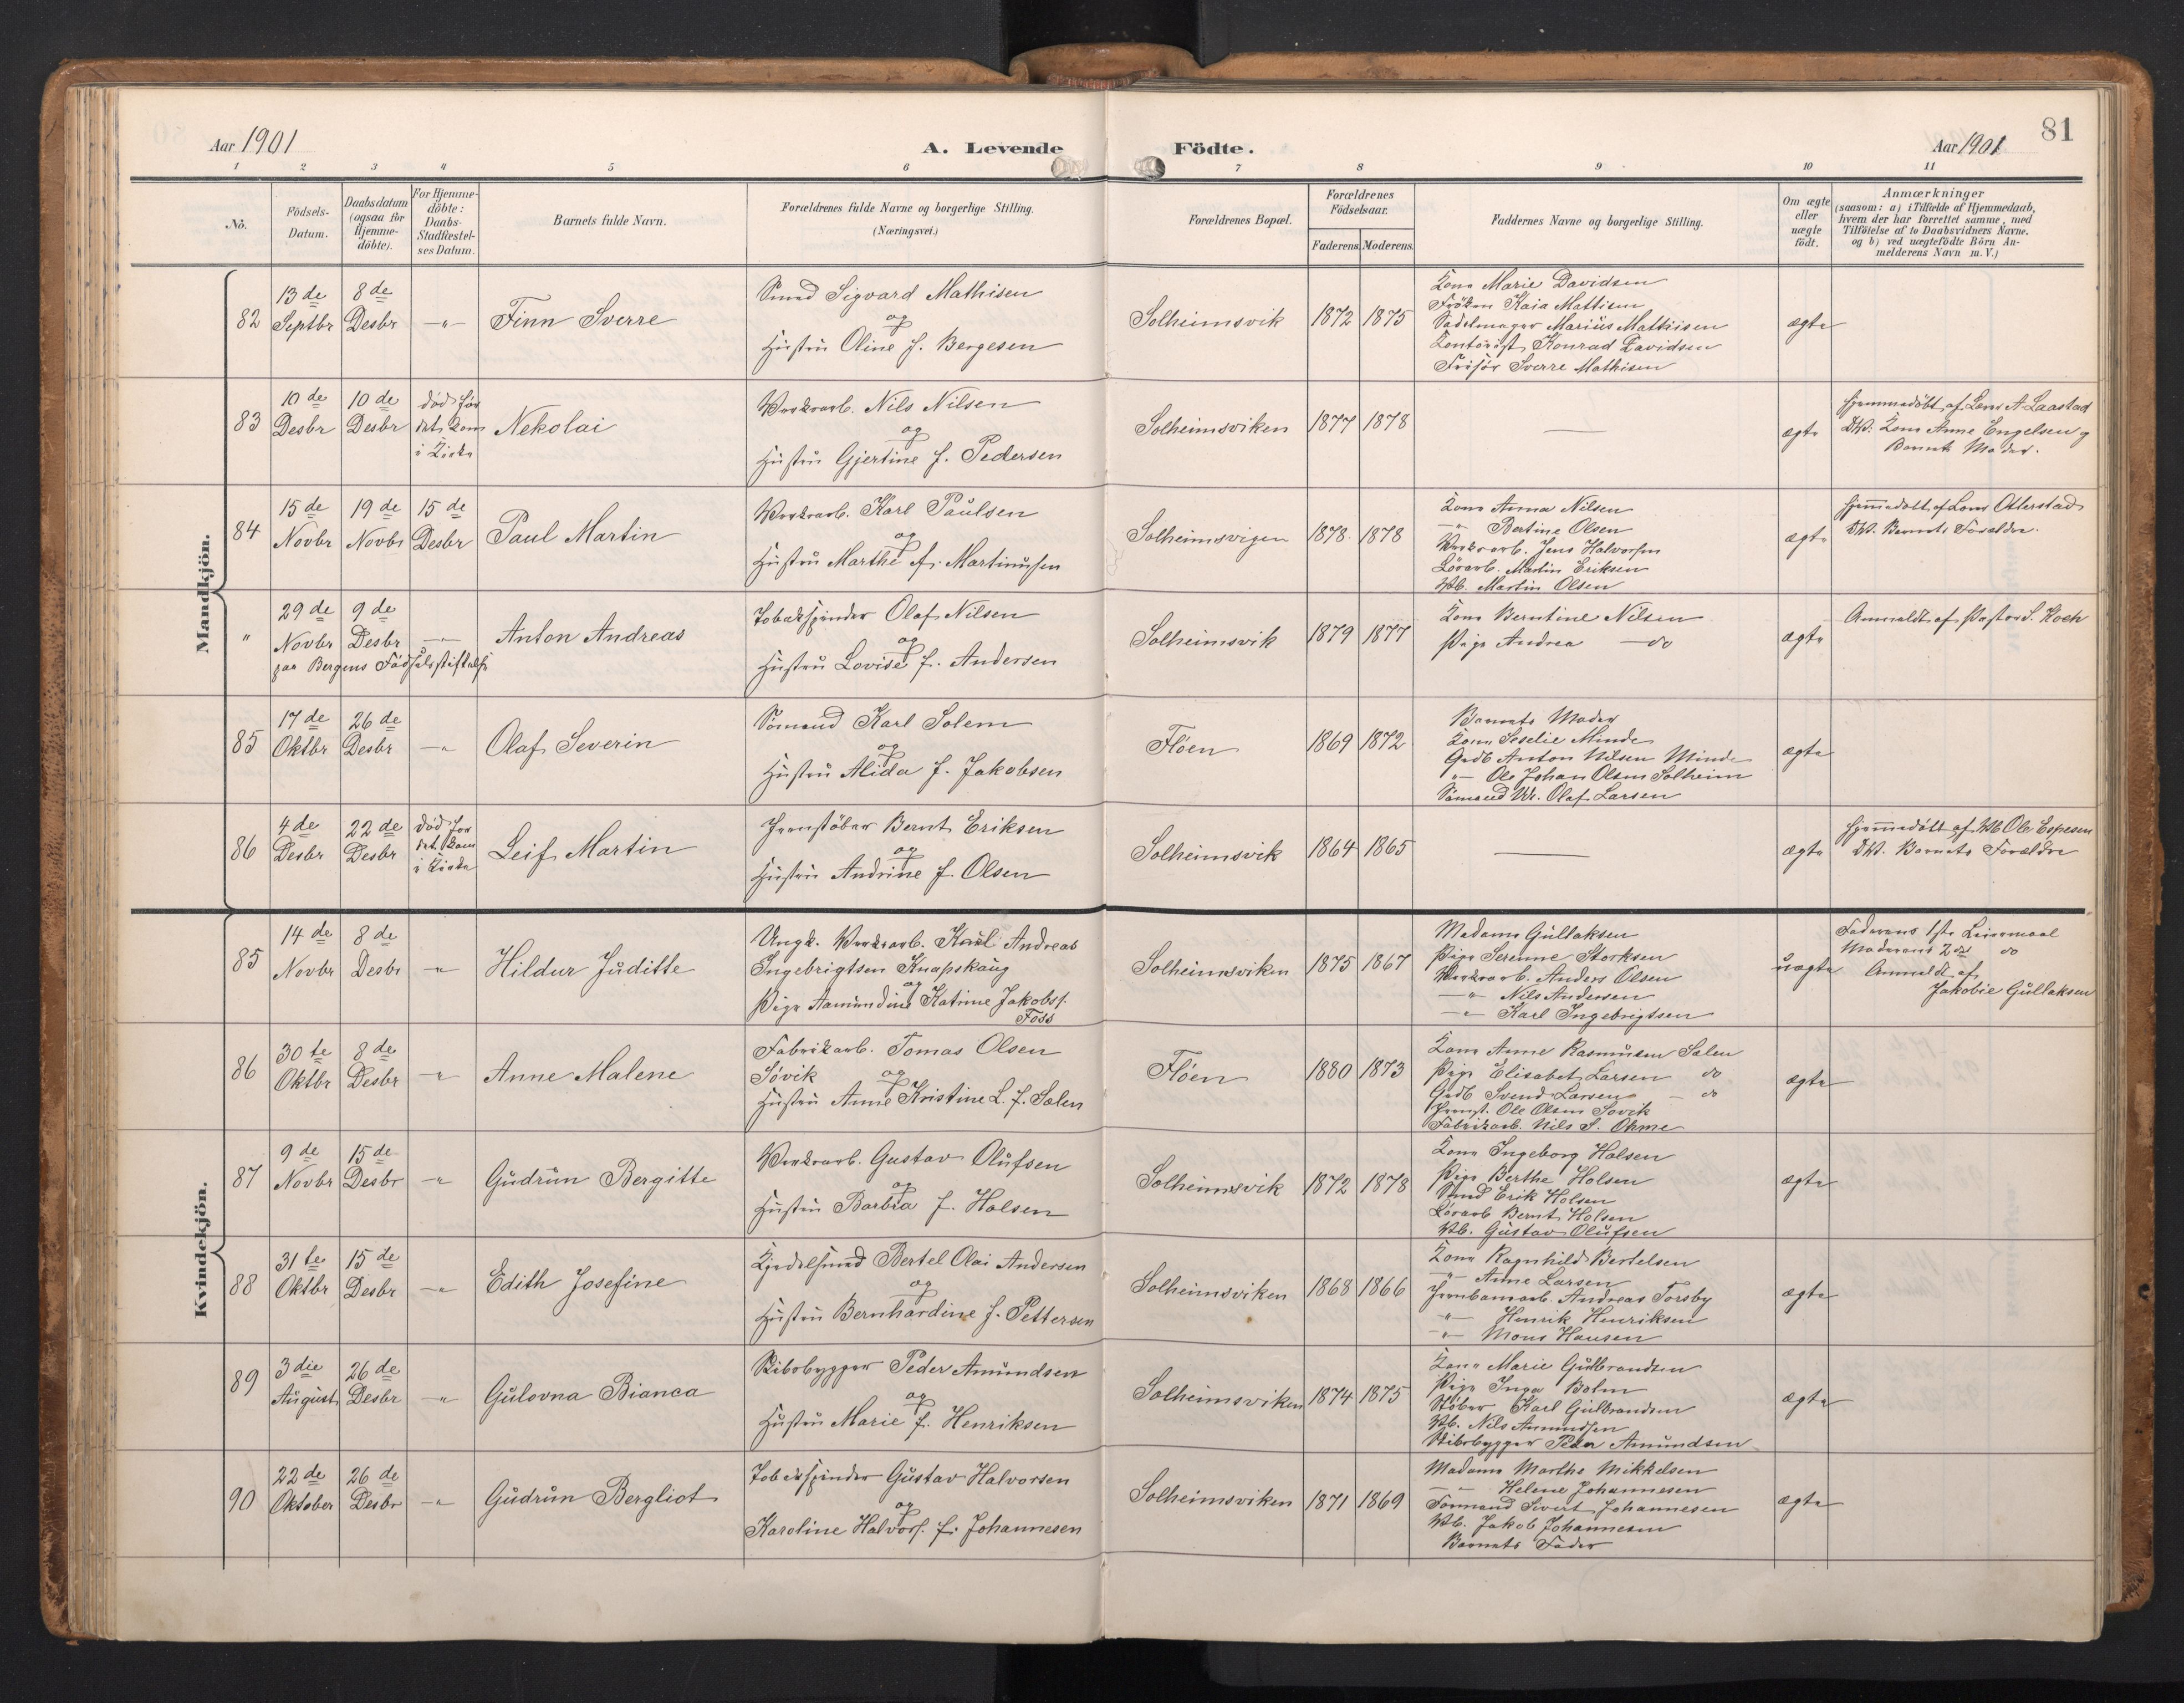 Aar 1901
A. Levende Födte.
Aar 1901
81
1 2 3 4 5 6 7 8 9 10 11
No.
Födsels-
Datum.
Daabsdatum
(ogsaa for
Hjemme-
döbte).
For Hjemme-
döbte:
Daabs-
Stadfæstel-
ses Datum.
Barnets fulde Navn.
Forældrenes fulde Navne og borgerlige Stilling.
(Næringsvei.)
Forældrenes Bopæl.
Forældrenes
Födselsaar.
Faderens. Moderens.
Faddernes Navne og borgerlige Stilling.
Om ægte
eller
uægte
födt.
Anmærkninger
(saasom: a) i Tilfælde af Hjemmedaab,
hvem der har forrettet samme, med
Tilföielse af to Daabsvidners Navne.
og b) ved uægtefödte Börn An-
melderens Navn m. V.)
Mandkjön.
82
13de
Septbr
8de
Desbr
-"-
Finn Sverre
Smed Sigvard Mathisen
og
Hustru Oline f. Bergesen
Solheimsvik
1872 1875
Kone Marie Davidsen
Fröken Kaia Mathisen
Sadelmager Marius Mathisen
Kontorist Konrad Davidsen
Frisör Sverre Mathisen
ægte
83
10de
Desbr
10de
Desbr
död før
det kom
i Kirke
Nekolai
Værksarb. Nils Nilsen
og
Hustru Gjertine f. Pedersen
Solheimsviken
1877 1878
—
ægte
Hjemmedöbt af Læns A. Laastad
DV: Kone Anne Engelsen og
Barnets Moder.
84
15de
Novbr
19de
Novbr
15de
Desbr
Paul Martin
Værksarb. Karl Paulsen
og
Hustru Marthe f. Martinussen
Solheimsvigen
1878 1878
Kone Anna Nilsen
-"- Bertine Olsen
Værksarb. Jens Halvorsen
Løsarb. Martin Eriksen
Vb. Martin Olsen
ægte
Hjemmedöbt af Læns Otterstad
DV. Barnets Forældre.
"
29de
Novbr
9de
Desbr
-"-
paa Bergens Födselsstiftelse
Anton Andreas
Tobakspinder Olaf Nilsen
og
Hustru Lovise f. Andersen
Solheimsvik
1879 1877
Kone Berntine Nilsen
Pige Andrea — do
ægte
Anmeldt af Pastor S. Koch
85
17de
Oktbr
26de
Desbr
-"-
Olaf Severin
Sömand Karl Solem
og
Hustru Alida f. Jakobsen
Flöen
1869 1872
Barnets Moder
Kone Seselie Minde
Grdb Anton Nilsen Minde
"- Ole Johan Olsen Solheim
Sömand Olaf Larsen
ægte
86
4de
Desbr
22de
Desbr
död før
det kom
i Kirke
Leif Martin
Jernstöber Bernt Eriksen
og
Hustru Andrine f Olsen
Solheimsvik
1864 1865
—
ægte
Hjemmedöbt af Vb Ole Espesen
DV. Barnets Forældre
Kvindekjön.
85
14de
Novbr
8de
Desbr
-"-
Hildur Juditte
Ungk. Værksarb. Karl Andreas
Ingebrigtsen Knapskaug
og
Pige Aamundine Katrine Jakobsf.
Foss
Solheimsviken
1875 1867
Madame Gullaksen
Pige Serenne Storksen
Værksarb. Anders Olsen
-"- Nils Andersen
-"- Karl Ingebrigtsen
uægte
Faderens 1ste Leiermaal
Moderens 2de do
Anmeldt af
Jakobie Gullaksen
86
30te
Oktbr
8de
Desbr
-"-
Anne Malene
Fabrikarb. Tomas Olsen
Sövik
og
Hustru Anne Kristine L. f. Sælen
Flöen
1880 1873
Kone Anne Rasmusen Sælen
Pige Elisabet Larsen do
Grdb Svend Larsen - do
Jernst. Ole Olsen Sövik
Fabrikarb. Nils S. Ohme
ægte
87
9de
Novbr
15de
Desbr
-"-
Gudrun Bergitte
Værksarb. Gustav Olufsen
og
Hustru Barbra f. Halsen
Solheimsvik
1872 1878
Kone Ingeborg Halsen
Pige Berthe Holsen
Smed Erik Holsen
Løsarb Bernt Holsen
Vb. Gustav Olufsen
ægte
88
31te
Oktbr
15de
Desbr
-"-
Edith Josefine
Kjedelsmed Bertel Olai Andersen
og
Hustru Bernhardine f. Pettersen
Solheimsviken
1868 1866
Kone Ragnhild Bertelsen
-"- Anne Larsen
Jernbanearb. Andreas Torsby
-"- Henrik Henriksen
-"- Mons Hansen
ægte
89
3die
August
26de
Desbr
-"-
Gulovna Bianca
Skibsbygger Peder Amundsen
og
Hustru Marie f. Henriksen
Solheimsviken
1874 1875
Kone Marie Gulbrandsen
Pige Inga Bolm
Støber Karl Gulbrandsen
Vb. Nils Amundsen
Skibsbygger Peder Amundsen
ægte
90
22de
Oktober
26de
Desbr
-"-
Gudrun Bergliot
Tobakspinder Gustav Halvorsen
og
Karoline Halvors. f. Johannesen
Solheimsviken
1871 1869
Madame Marthe Mikkelsen
-"- Helene Johannesen
Formand Sivert Johannesen
Vb. Jakob Johannesen
Barnets Fader
ægte